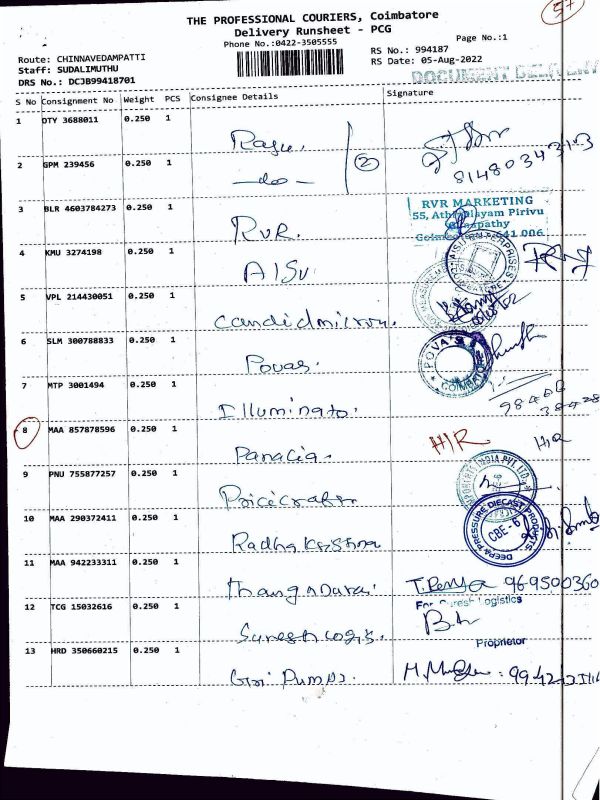 57
THE PROFESSIONAL COURIERS, Coimbatore
Delivery Runsheet - PCG
Phone No.:0422-3505555
Page No.:1
Route: CHINNAVEDAMPATTI
RS No.: 994187
Staff: SUDALIMUTHU
RS Date: 05-Aug-2022
DRS No.: DCJB99418701
DOCUMENT DELIVERY
S No Consignment No Weight PCS Consignee Details Signature
1 DTY 3688011 0.250 1 Raju.
8148034313
2 GPM 239456 0.250 1 -do- 2
3 BLR 4603784273 0.250 1 RVR.
RVR MARKETING
55, Athipalayam Pirivu
Ganapathy
Coimbatore-641 006.
4 KMU 3274198 0.250 1 AISV
5 VPL 214430051 0.250 1 Candidmicron.
6 SLM 300788833 0.250 1 Povas.
POVA'S
COIMBATORE
7 MTP 3001494 0.250 1 Illuminato.
8 MAA 857878596 0.250 1 Panacia. H/R
9 PNU 755877257 1 0.250 Pricicrafter
INDIA PVT. LTD.
10 MAA 290372411 0.250 1 Radhakrishna
DEEPA PRESSURE DIECAST PRODUCTS
CBE-6
11 MAA 942233311 0.250 1 Thangadurai. T. Renga 969500360
12 TCG 15032616 0.250 1 Suresh Logis.
For Suresh Logistics
Proprietor
13 HRD 350660215 0.250 1 Giri Pumps.